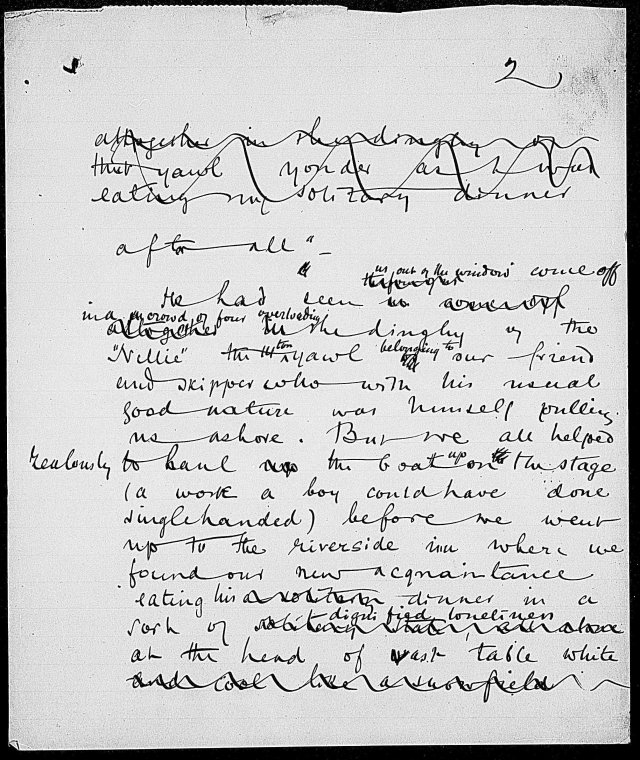 2
altogether in the dinghy of
that yawl yonder as I was
eating my solitary dinner
after all" –
us out of the window come off
He had seen
in a crowd of four overloading
altogether in the dinghy of the
"Nellie" the ton yawl belonging to our friend
and skipper who with his usual
good nature was himself pulling
us ashore. But we all helped
zealously to haul up the boat up on the the stage
(a work a boy could have done
singlehanded) before we went
up to the riverside inn where we
found our new acquaintance
eating his a solitary dinner in a
dignified loneliness
sort of
at the head of vast table white
and cool like a snowfield